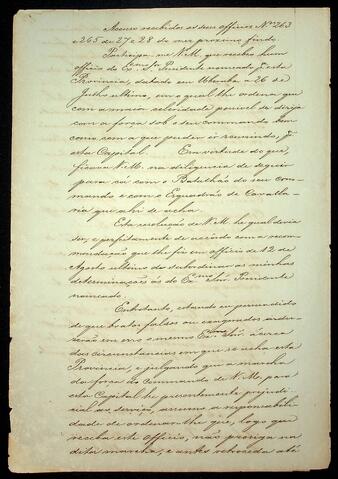 Accuso recebidos os seus officios Nos 263
e 265 de 27 e 28 do mez proximo findo.
Participa-me V. M. que recebeu hum
officio do Exmo Sr. Presidente nomeado p.a esta
Provincia, datado em Uberaba a 26 de
Julho ultimo, em o qual lhe ordena que
com a maior celeridade possivel se dirija
com a força sob o seu commando bem
como com a que puder ir reunindo, p.a
esta Capital. Em virtude do que,
ficava V. M. na diligencia de seguir
para cá com o Batalhão do seu com-
mando e com o Esquadrão de Cavalla-
ria que ahi se acha.
Esta resolução de V. M. he qual devia
ser, e perfeitamente de accordo com a recom-
mendação que lhe fiz em officio de 12 de
Agosto ultimo de subordinar as minhas
determinações ás do Exmo Snr. Presidente
nomeado.
Entretanto, estando eu persuadido
de que boatos falsos ou exagerados indu-
zirão em erro o mesmo Exmo Snr. á cerca
das circunstancias em que se acha esta
Provincia, e julgando que a marcha
da força do commando de V. M. para
esta Capital he presentemente prejudi-
cial ao serviço, assumo a responsabili-
dade de ordenar-lhe que, logo que
receba este officio, não prosiga na
dita marcha, e antes retroceda até